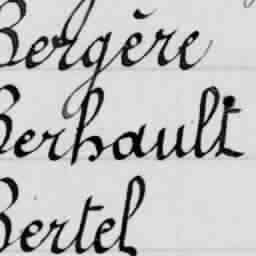 Bergère
Berhault
Bertel